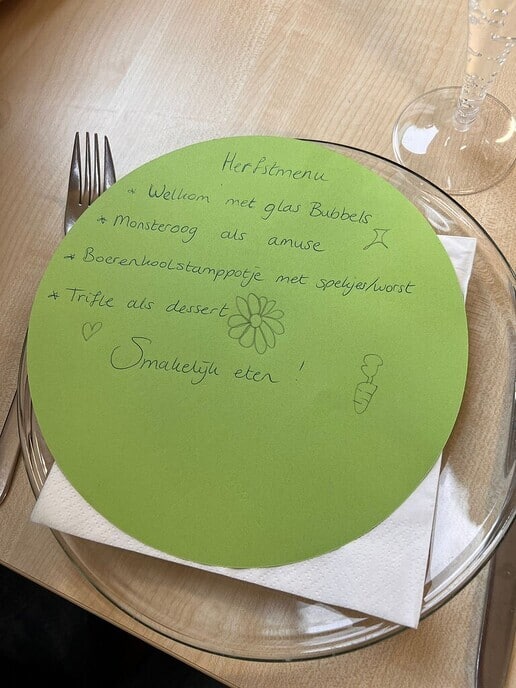 Herfstmenu
* Welkom met glas Bubbels
* Monsteroog als amuse
* Boerenkoolstamppotje met spekjes/worst
* Trifle als dessert
Smakelijk eten !